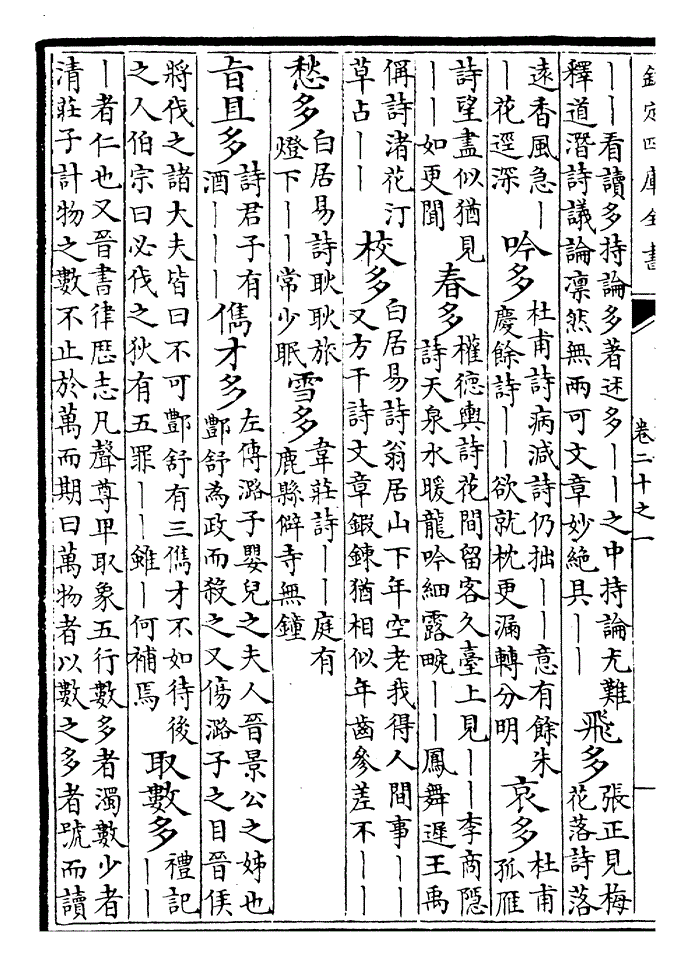 欽定四庫全書
卷二十之一
｜｜看讀多持論多著述多｜｜之中持論尤難
釋道潛詩議論凛然無兩可文章妙絕具｜｜
飛多
張正見梅
花落詩落
遠香風急｜
｜花逕深
吟多
杜甫詩病減詩仍拙｜｜意有餘朱
慶餘詩｜｜欲就枕更漏轉分明
哀多
杜甫
孤雁
詩望盡似猶見
｜｜如更聞
春多
權德輿詩花間留客久臺上見｜｜李商隱
詩天泉水暖龍吟細露畹｜｜鳳舞遲王禹
偁詩渚花汀
草占｜｜
校多
白居易詩翁居山下年空老我得人間事｜｜
又方干詩文章鍛鍊猶相似年齒參差不｜｜
愁多
白居易詩耿耿旅
燈下｜｜常少眠
雪多
韋莊詩｜｜庭有
鹿縣僻寺無鐘
旨且多
詩君子有
酒｜｜｜
儁才多
左傳潞子嬰兒之夫人晉景公之姊也
酆舒為政而殺之又傷潞子之目晉侯
將伐之諸大夫皆曰不可酆舒有三儁才不如待後
之人伯宗曰必伐之狄有五罪｜｜雖｜何補焉
取數多
禮記
｜｜
｜者仁也又晉書律厯志凡聲尊卑取象五行數多者濁數少者
清莊子計物之數不止於萬而期曰萬物者以數之多者號而讀